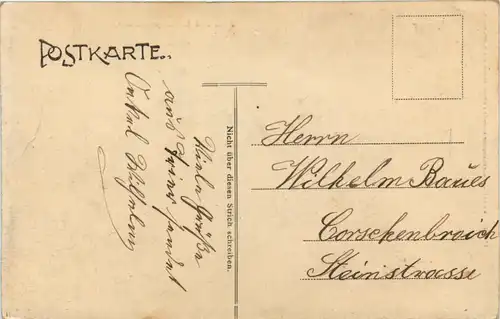 POSTKARTE.
Viele Grüße
aus Trier sendet
Onkel Wilhelm
Nicht über diesen Strich schreiben.
Herrn
Wilhelm Baues
Corschenbroich
Steinstrasse